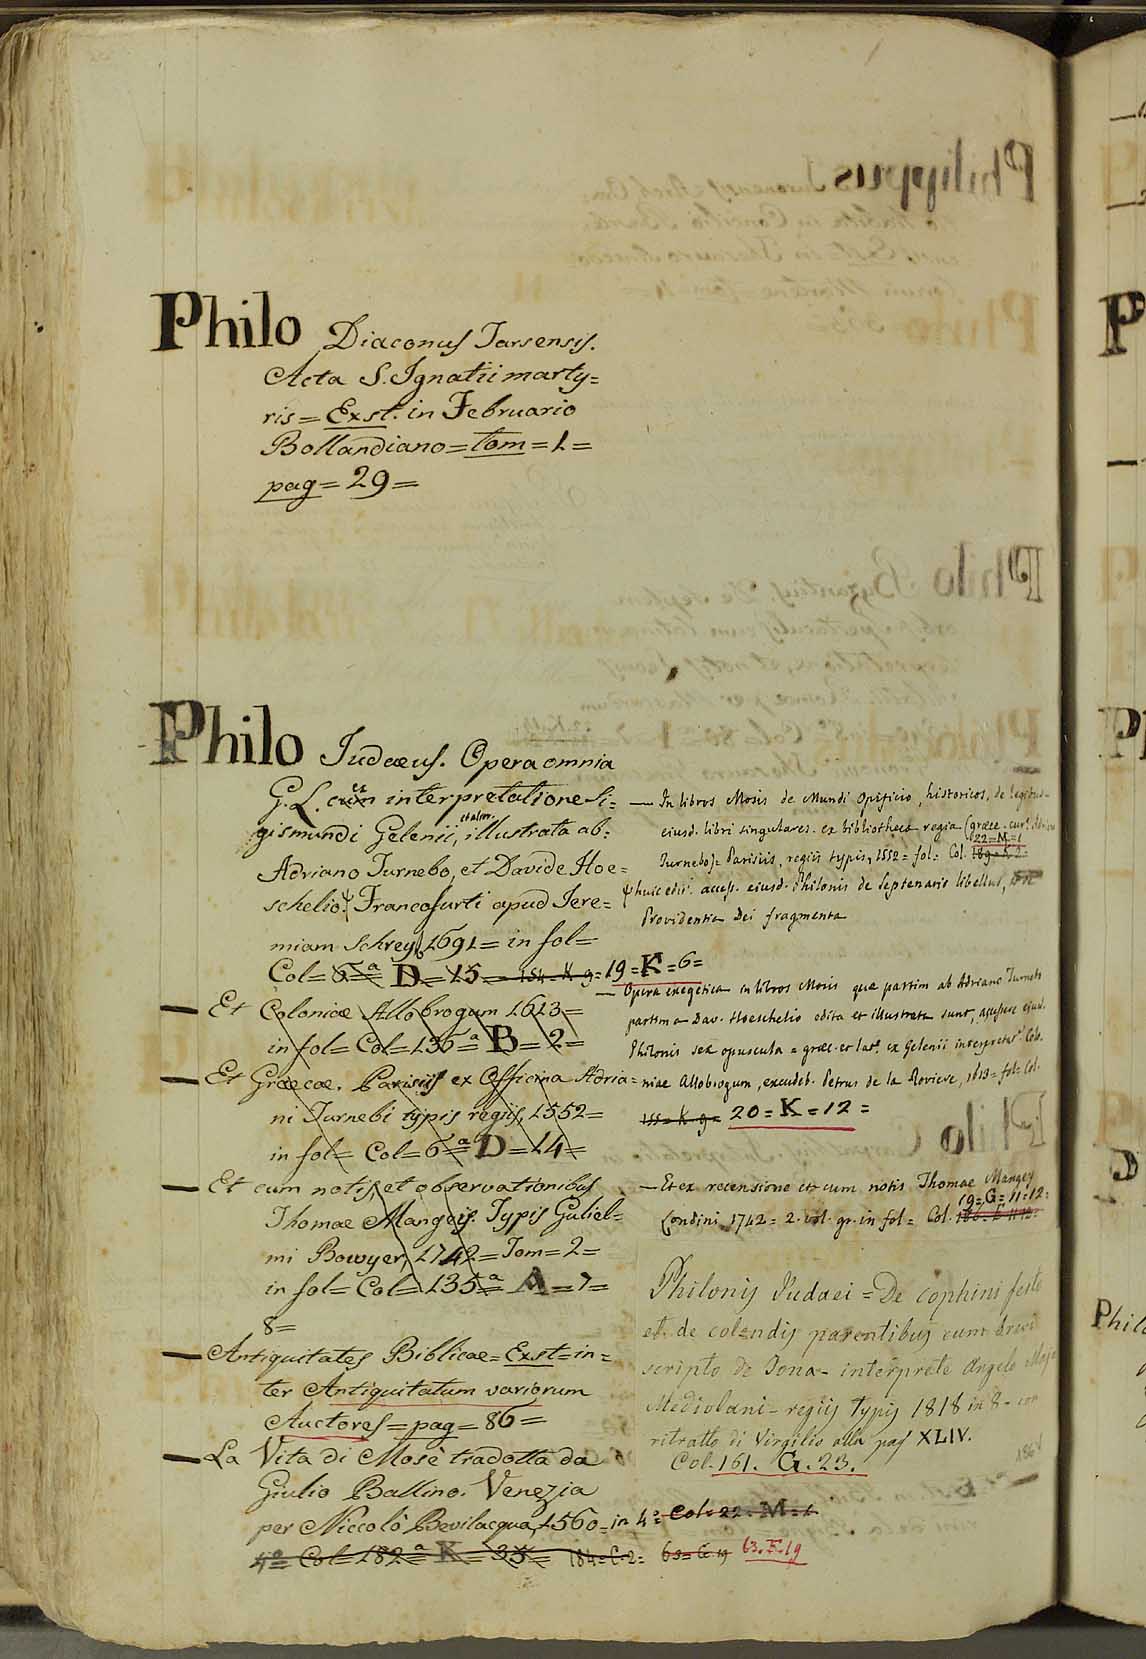 Philo Diaconus Tarsensis.
Acta S. Ignatii marty=
ris = Exst. in Februario
Bollandiano = tom = 1 =
pag = 29 =
Philo Judæus. Opera omnia
G. L. cum ex interpretatione Si=
gismundi Gelenii, et alior. illustrata ab=
Adriano Turnebo, et Davide Hoe=
schelio. Francofurti apud Jere=
miam Schrey, 1691 = in fol =
Col = 6=ª D = 15 = 154 = K 9 = 19 = K = 6 =
Et Coloniæ Allobrogum 1613 =
in fol = Col = 136 =ª B = 2 =
Et Græcæ. Parisiis ex Officina Adria=
ni Turnebi typis regiis, 1552 =
in fol = Col = 6 =ª D = 14 =
Et cum notis, et observationibus
Thomae Mangeis. Typis Guliel=
mi Bowyer, 1742 = Tom = 2 =
in fol = Col = 135 =ª A = 7 =
8 =
Antiquitates Biblicae = Exst = in=
ter Antiquitatum variorum
Auctores = pag = 86 =
La Vita di Mosè tradotta da
Giulio Ballino. Venezia
per Niccolò Bevilacqua, 1560 = in 4º = Col = 22 = M = 1
4º = Col = 182 =ª K = 35 = 184 = C. 2 = 63 = G 19 63. E. 19
— In libros Mosis de Mundi Opificio, historicos, de legibus
eiusd. libri singulares. ex bibliotheca regia (græce. cur.
22 = M = 1
Turnebo) = Parisiis, regiis typis, 1552 = fol = Col. 189 = K 2 =
huic edit. access. eiusd. Philonis de Septenario libellus,
Providentia Dei fragmenta
— Opera exegetica in libros Mosis quæ partim ab Adriano Turnebo
partim a Dav. Hoeschelio edita et illustrata sunt, accessere ejusd.
Philonis sex opuscula = græc. et lat. ex Gelenii interpretat. Colo.
niae Allobrogum, excudeb. Petrus de la Roviere, 1613 = fol = Col.
155 = K 9 = 20 = K = 12 =
— Et ex recensione et cum notis Thomae Mangey
19 = G = 11 = 12 =
Londini 1742 = 2. vol. gr. in fol = Col.
Philonis Judaei = De cophini festo
et de colendis parentibus cum brevi
scripto de Jona - interprete Angelo Majo
Mediolani - regiis typis 1818 in 8 - con
ritratto di Virgilio alla pag XLIV.
Col. 161. G. 23.